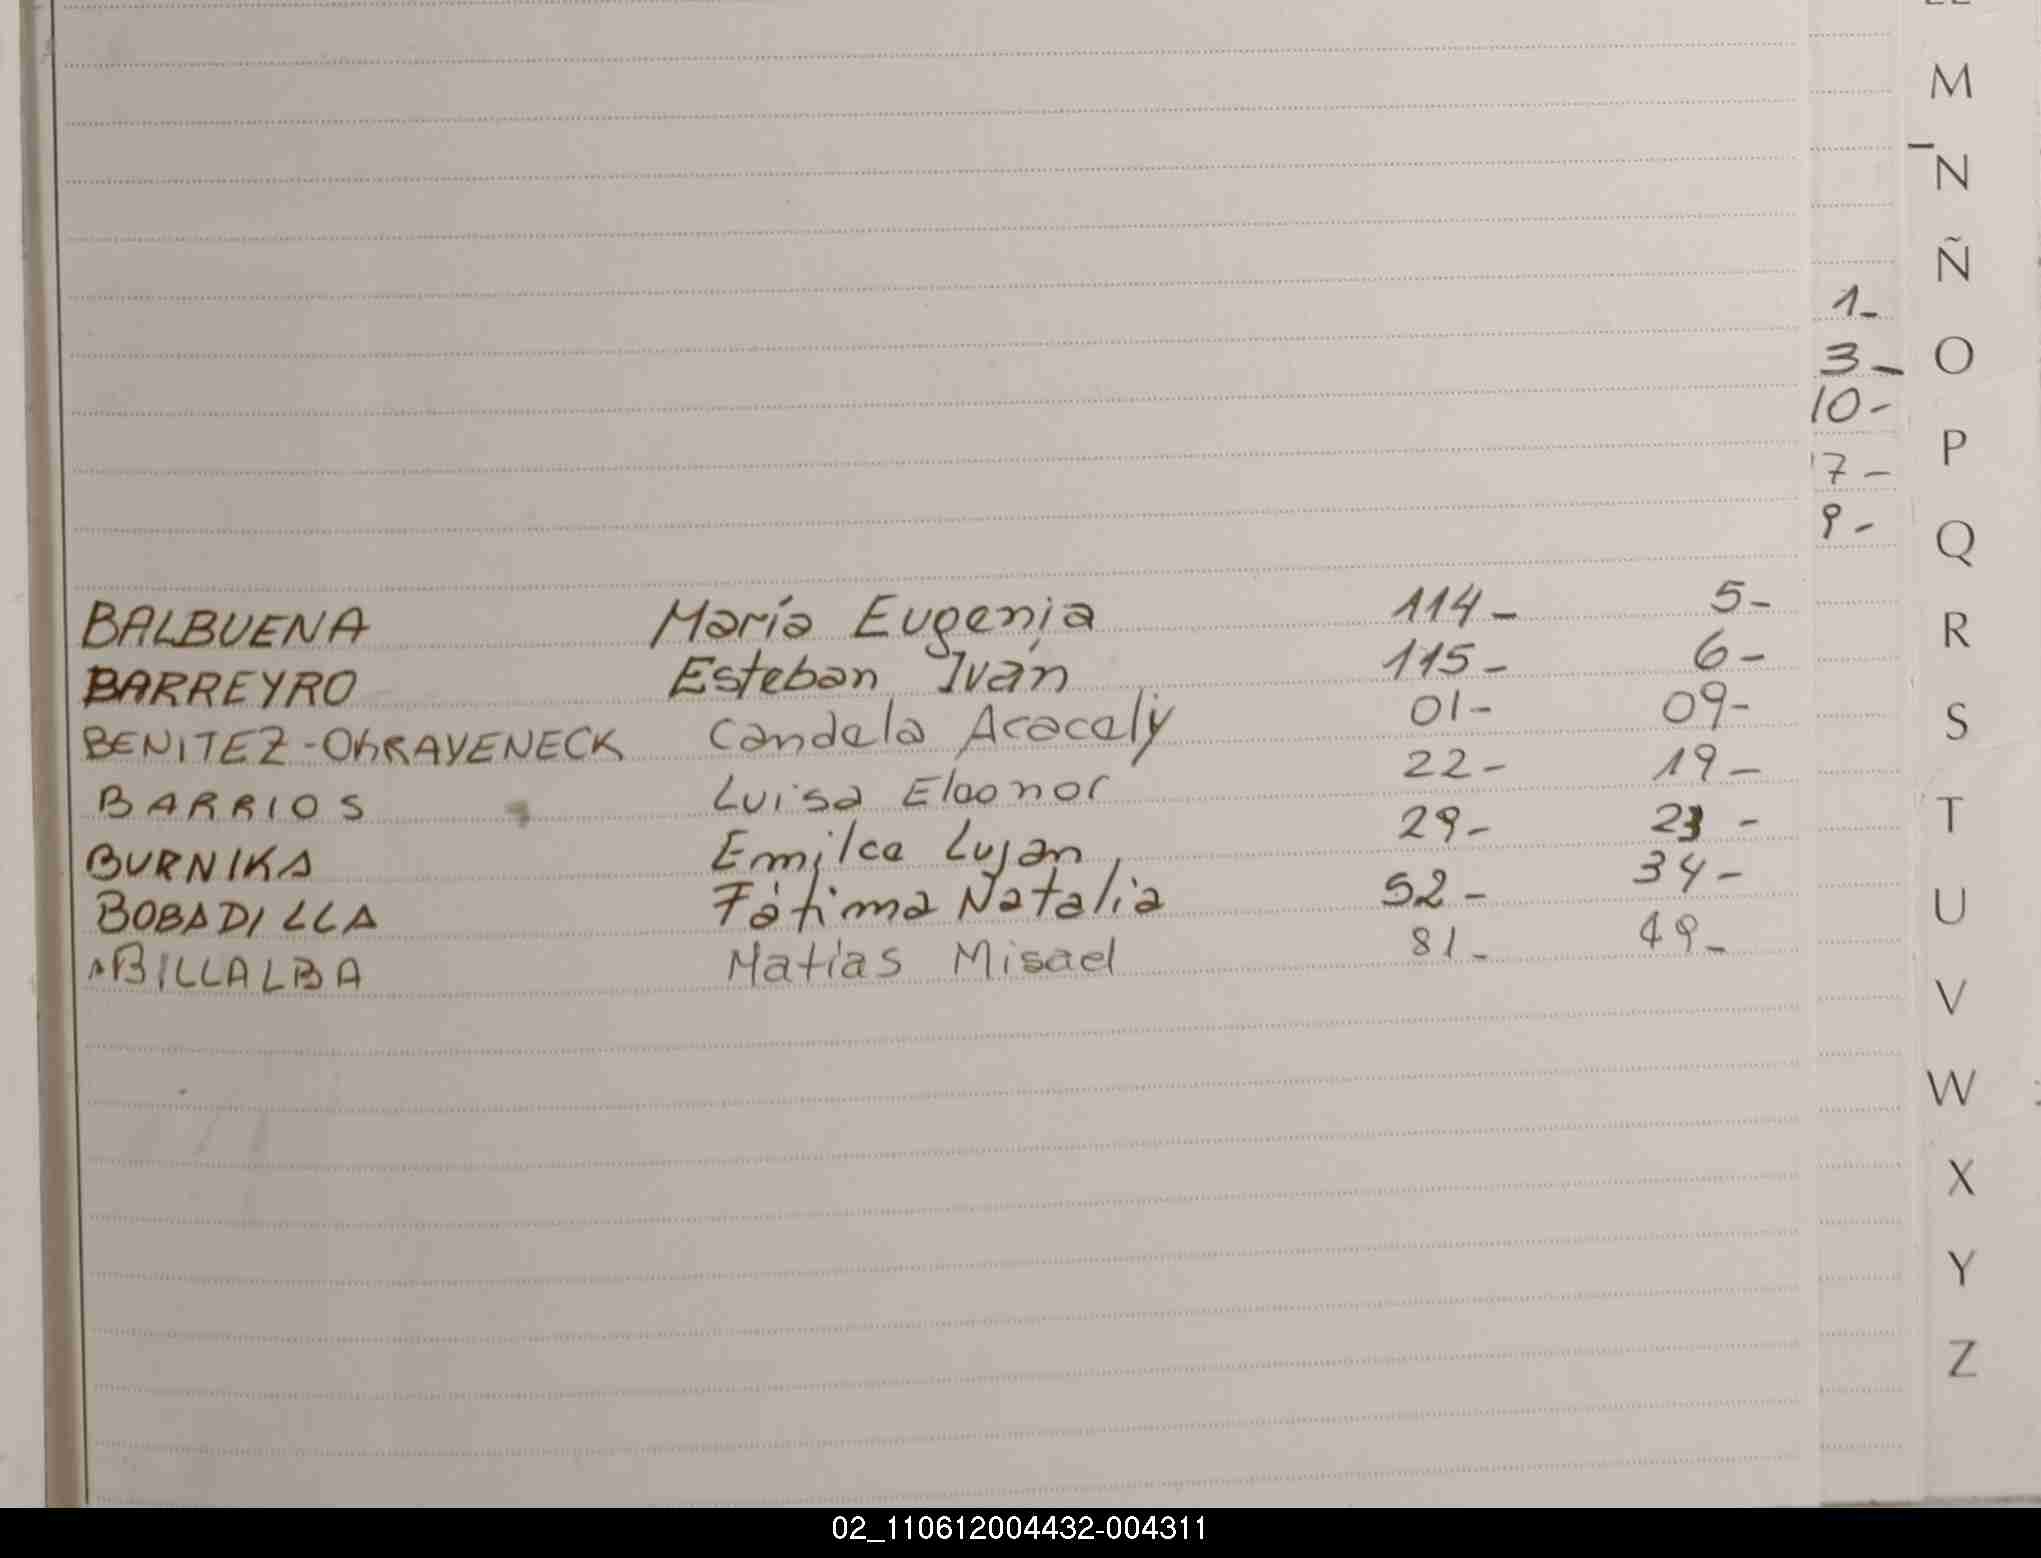 M
N
Ñ
1-
3-
O
10-
P
7-
9-
Q
BALBUENA María Eugenia 114- 5-
R
BARREYRO Esteban Iván 115- 6-
BENITEZ-OhRAVENECK Candela Acacely 01- 09-
S
BARRIOS Luisa Eleonor 22- 19-
T
BURNIKA Emilce Luján 29- 23-
BOBADILLA Fátima Natalia 52- 34-
U
BILLALBA Matías Misael 81- 49-
V
W
X
Y
Z
02_110612004432-004311